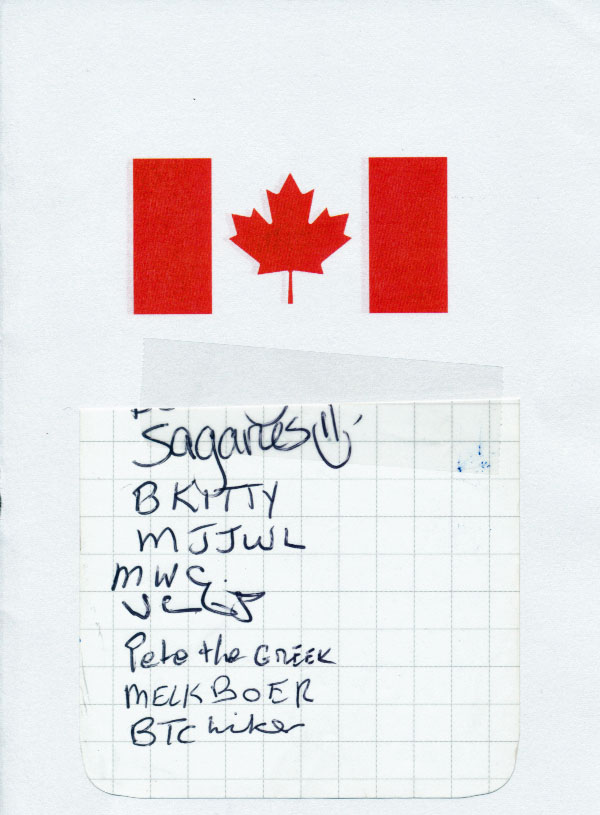 Sagaries
B KITTY
MJJWL
MWC.
Pete the GREEK
MELKBOER
BTC hiker